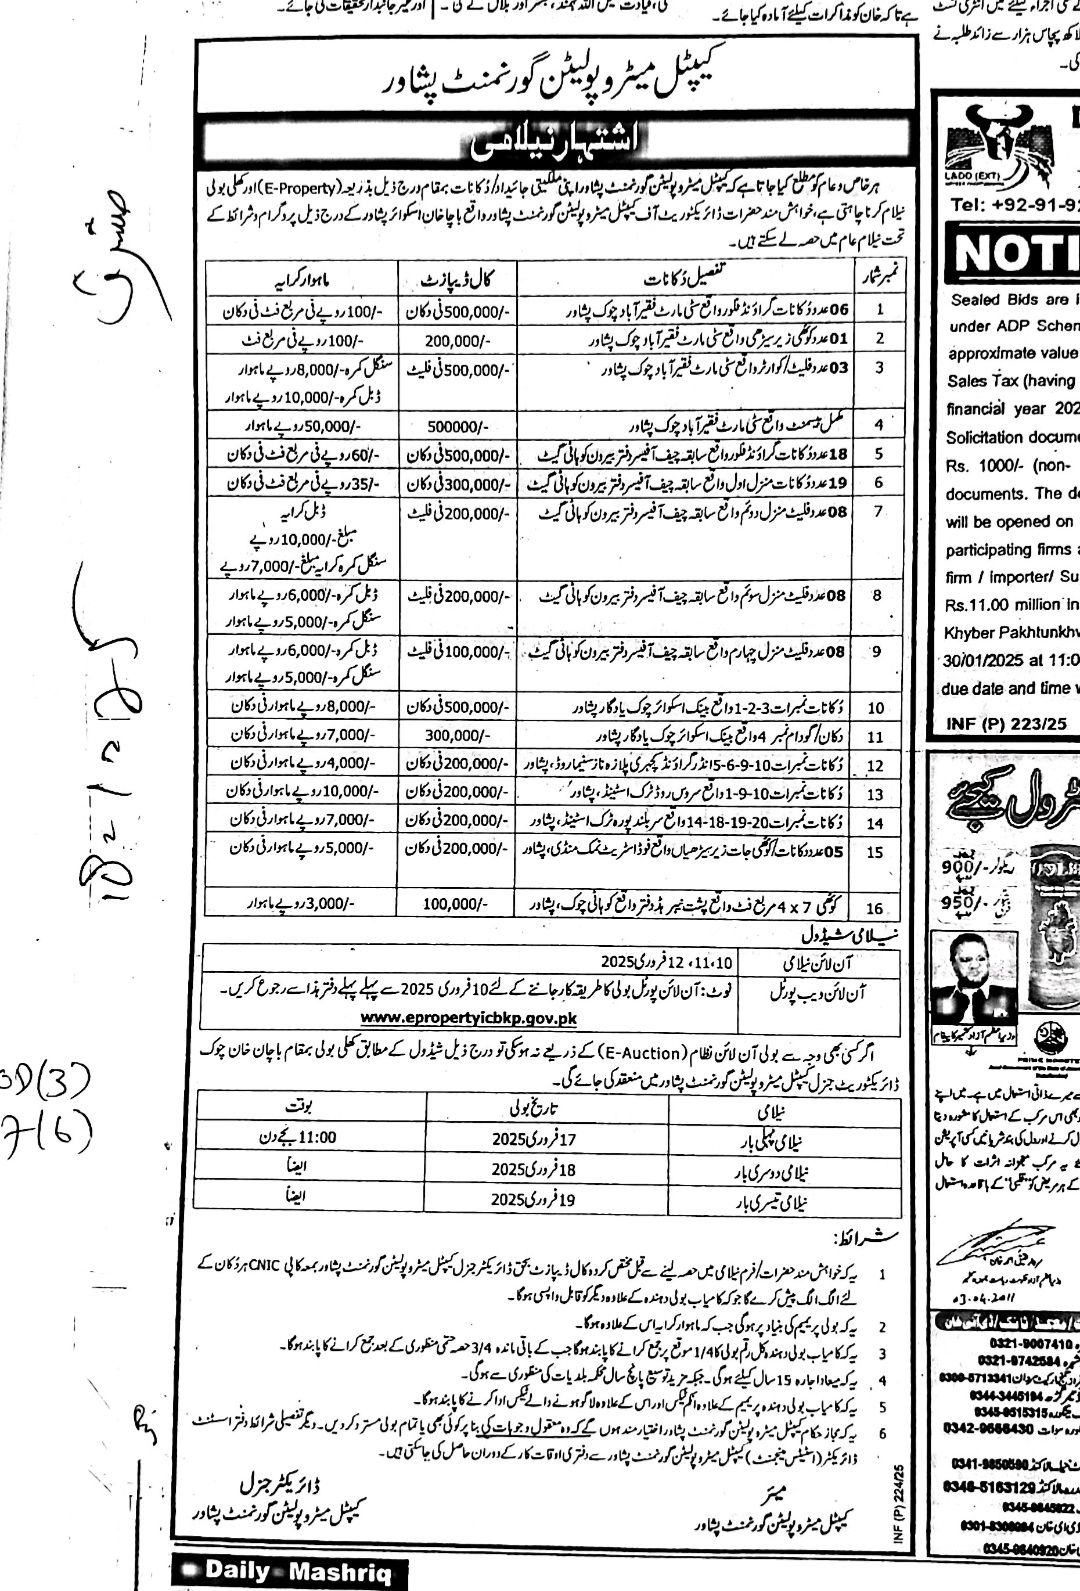 کیپٹل میٹروپولیٹن گورنمنٹ پشاور
اشتہار نیلامی
ہر خاص و عام کو مطلع کیا جاتا ہے کہ کیپٹل میٹروپولیٹن گورنمنٹ پشاور اپنی ملکیتی جائیداد/دُکانات بمقام درج ذیل بذریعہ (E-Property) اور کھلی بولی
نیلام کرنا چاہتی ہے، خواہش مند حضرات ڈائریکٹوریٹ آف کیپٹل میٹروپولیٹن گورنمنٹ پشاور واقع باچا خان اسکوائر پشاور کے درج ذیل پروگرام و شرائط کے
تحت نیلام عام میں حصہ لے سکتے ہیں۔
نمبر شمار تفصیل دُکانات کال ڈیپازٹ ماہوار کرایہ
1 06 عدد دُکانات گراؤنڈ فلور واقع سٹی مارٹ فقیر آباد چوک پشاور 500,000/- فی دکان 100/- روپے فی مربع فٹ فی دکان
2 01 عدد کوٹھی زیر سیڑھی واقع سٹی مارٹ فقیر آباد چوک پشاور 200,000/- 100/- روپے فی مربع فٹ
3 03 عدد فلیٹ/کوارٹر واقع سٹی مارٹ فقیر آباد چوک پشاور 500,000/- فی فلیٹ سنگل کمرہ 8,000/- روپے ماہوار
ڈبل کمرہ 10,000/- روپے ماہوار
4 مکمل بیسمنٹ واقع سٹی مارٹ فقیر آباد چوک پشاور 500000/- 50,000/- روپے ماہوار
5 18 عدد دُکانات گراؤنڈ فلور واقع سابقہ چیف آفیسر دفتر بیرون کوہاٹی گیٹ 500,000/- فی دکان 60/- روپے فی مربع فٹ فی دکان
6 19 عدد دُکانات منزل اول واقع سابقہ چیف آفیسر دفتر بیرون کوہاٹی گیٹ 300,000/- فی دکان 35/- روپے فی مربع فٹ فی دکان
7 08 عدد فلیٹ منزل دوئم واقع سابقہ چیف آفیسر دفتر بیرون کوہاٹی گیٹ 200,000/- فی فلیٹ ڈبل کرایہ
مبلغ 10,000/- روپے
سنگل کمرہ کرایہ مبلغ 7,000/- روپے
8 08 عدد فلیٹ منزل سوئم واقع سابقہ چیف آفیسر دفتر بیرون کوہاٹی گیٹ 200,000/- فی فلیٹ ڈبل کمرہ 6,000/- روپے ماہوار
سنگل کمرہ 5,000/- روپے ماہوار
9 08 عدد فلیٹ منزل چہارم واقع سابقہ چیف آفیسر دفتر بیرون کوہاٹی گیٹ 100,000/- فی فلیٹ ڈبل کمرہ 6,000/- روپے ماہوار
سنگل کمرہ 5,000/- روپے ماہوار
10 دُکانات نمبرات 1-2-3 واقع بینک اسکوائر چوک یادگار پشاور 500,000/- فی دکان 8,000/- روپے ماہوار فی دکان
11 دکان/گودام نمبر 4 واقع بینک اسکوائر چوک یادگار پشاور 300,000/- 7,000/- روپے ماہوار فی دکان
12 دُکانات نمبرات 5-6-9-10 انڈر گراؤنڈ کچہری پلازہ ناز سینما روڈ، پشاور 200,000/- فی دکان 4,000/- روپے ماہوار فی دکان
13 دُکانات نمبرات 1-9-10 واقع سروس روڈ ٹرک اسٹینڈ، پشاور 200,000/- فی دکان 10,000/- روپے ماہوار فی دکان
14 دُکانات نمبرات 14-18-19-20 واقع سر بلند پورہ ٹرک اسٹینڈ، پشاور 200,000/- فی دکان 7,000/- روپے ماہوار فی دکان
15 05 عدد دُکانات/کوٹھی جات زیر سیڑھیاں واقع فوڈ اسٹریٹ نمک منڈی، پشاور 200,000/- فی دکان 5,000/- روپے ماہوار فی دکان
16 کوٹھی 7 x 4 مربع فٹ واقع پشت نیبر ہڈ دفتر واقع کوہاٹی چوک، پشاور 100,000/- 3,000/- روپے ماہوار
نیلامی شیڈول
آن لائن نیلامی 10، 11، 12 فروری 2025
آن لائن ویب پورٹل نوٹ: آن لائن پورٹل بولی کا طریقہ کار جاننے کے لئے 10 فروری 2025 سے پہلے پہلے دفتر ہذا سے رجوع کریں۔
www.epropertyicbkp.gov.pk
اگر کسی بھی وجہ سے بولی آن لائن نظام (E-Auction) کے ذریعے نہ ہو سکی تو درج ذیل شیڈول کے مطابق کھلی بولی بمقام باچا خان چوک
ڈائریکٹوریٹ جنرل کیپٹل میٹروپولیٹن گورنمنٹ پشاور میں منعقد کی جائے گی۔
نیلامی تاریخ بولی بوقت
نیلامی پہلی بار 17 فروری 2025 11:00 بجے دن
نیلامی دوسری بار 18 فروری 2025 ایضاً
نیلامی تیسری بار 19 فروری 2025 ایضاً
شرائط:
1 یہ کہ خواہش مند حضرات/فرم نیلامی میں حصہ لینے سے قبل مختص کردہ کال ڈیپازٹ بحق ڈائریکٹر جنرل کیپٹل میٹروپولیٹن گورنمنٹ پشاور بمعہ کاپی CNIC ہر دُکان کے
لئے الگ الگ پیش کرے گا جو کہ کامیاب بولی دہندہ کے علاوہ دیگر کو قابل واپسی ہوگا۔
2 یہ کہ بولی پریمیم کی بنیاد پر ہوگی جب کہ ماہوار کرایہ اس کے علاوہ ہوگا۔
3 یہ کہ کامیاب بولی دہندہ کل رقم بولی کا 1/4 موقع پر جمع کرانے کا پابند ہوگا جب کے باقی ماندہ 3/4 حصہ حتمی منظوری کے بعد جمع کرانے کا پابند ہوگا۔
4 یہ کہ میعاد اجارہ 15 سال کیلئے ہوگی۔ جبکہ مزید توسیع پانچ سال محکمہ بلدیات کی منظوری سے ہوگی۔
5 یہ کہ کامیاب بولی دہندہ پریمیم کے علاوہ انکم ٹیکس اور اس کے علاوہ لاگو ہونے والے ٹیکس ادا کرنے کا پابند ہوگا۔
6 یہ کہ مجاز حکام کیپٹل میٹروپولیٹن گورنمنٹ پشاور اختیار مند ہوں گے کہ وہ معقول وجوہات کی بنا پر کوئی بھی یا تمام بولی مسترد کردیں۔ دیگر تفصیلی شرائط دفتر اسسٹنٹ
ڈائریکٹر (اسٹیٹس مینجمنٹ) کیپٹل میٹروپولیٹن گورنمنٹ پشاور سے دفتری اوقات کار کے دوران حاصل کی جاسکتی ہیں۔
میئر
کیپٹل میٹروپولیٹن گورنمنٹ پشاور
ڈائریکٹر جنرل
کیپٹل میٹروپولیٹن گورنمنٹ پشاور
INF (P) 224/25
Daily Mashriq
مشرق
BD(3)
7(6)
ہے تاکہ خان کو مذاکرات کیلئے آمادہ کیا جائے۔
LADO (EXT)
Tel: +92-91-92
NOTI
Sealed Bids are i
under ADP Schem
approximate value
Sales Tax (having
financial year 202
Solicitation docume
Rs. 1000/- (non-
documents. The de
will be opened on
participating firms a
firm / importer/ Su
Rs.11.00 million In
Khyber Pakhtunkhw
30/01/2025 at 11:0
due date and time w
INF (P) 223/25
900/-
950/-
PRIME MINISTER
03.04.2011
0321-9007410
0321-9742584
0300-5713341
0344-3445194
0345-9515315
0342-9666430
0341-9850590
0346-5163129
0345-9645622
0301-8308984
0345-9640920